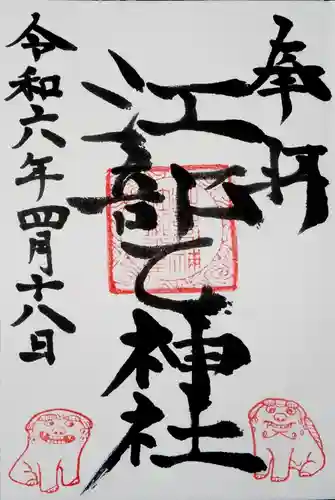 奉拝
江部乙神社
令和六年四月十八日